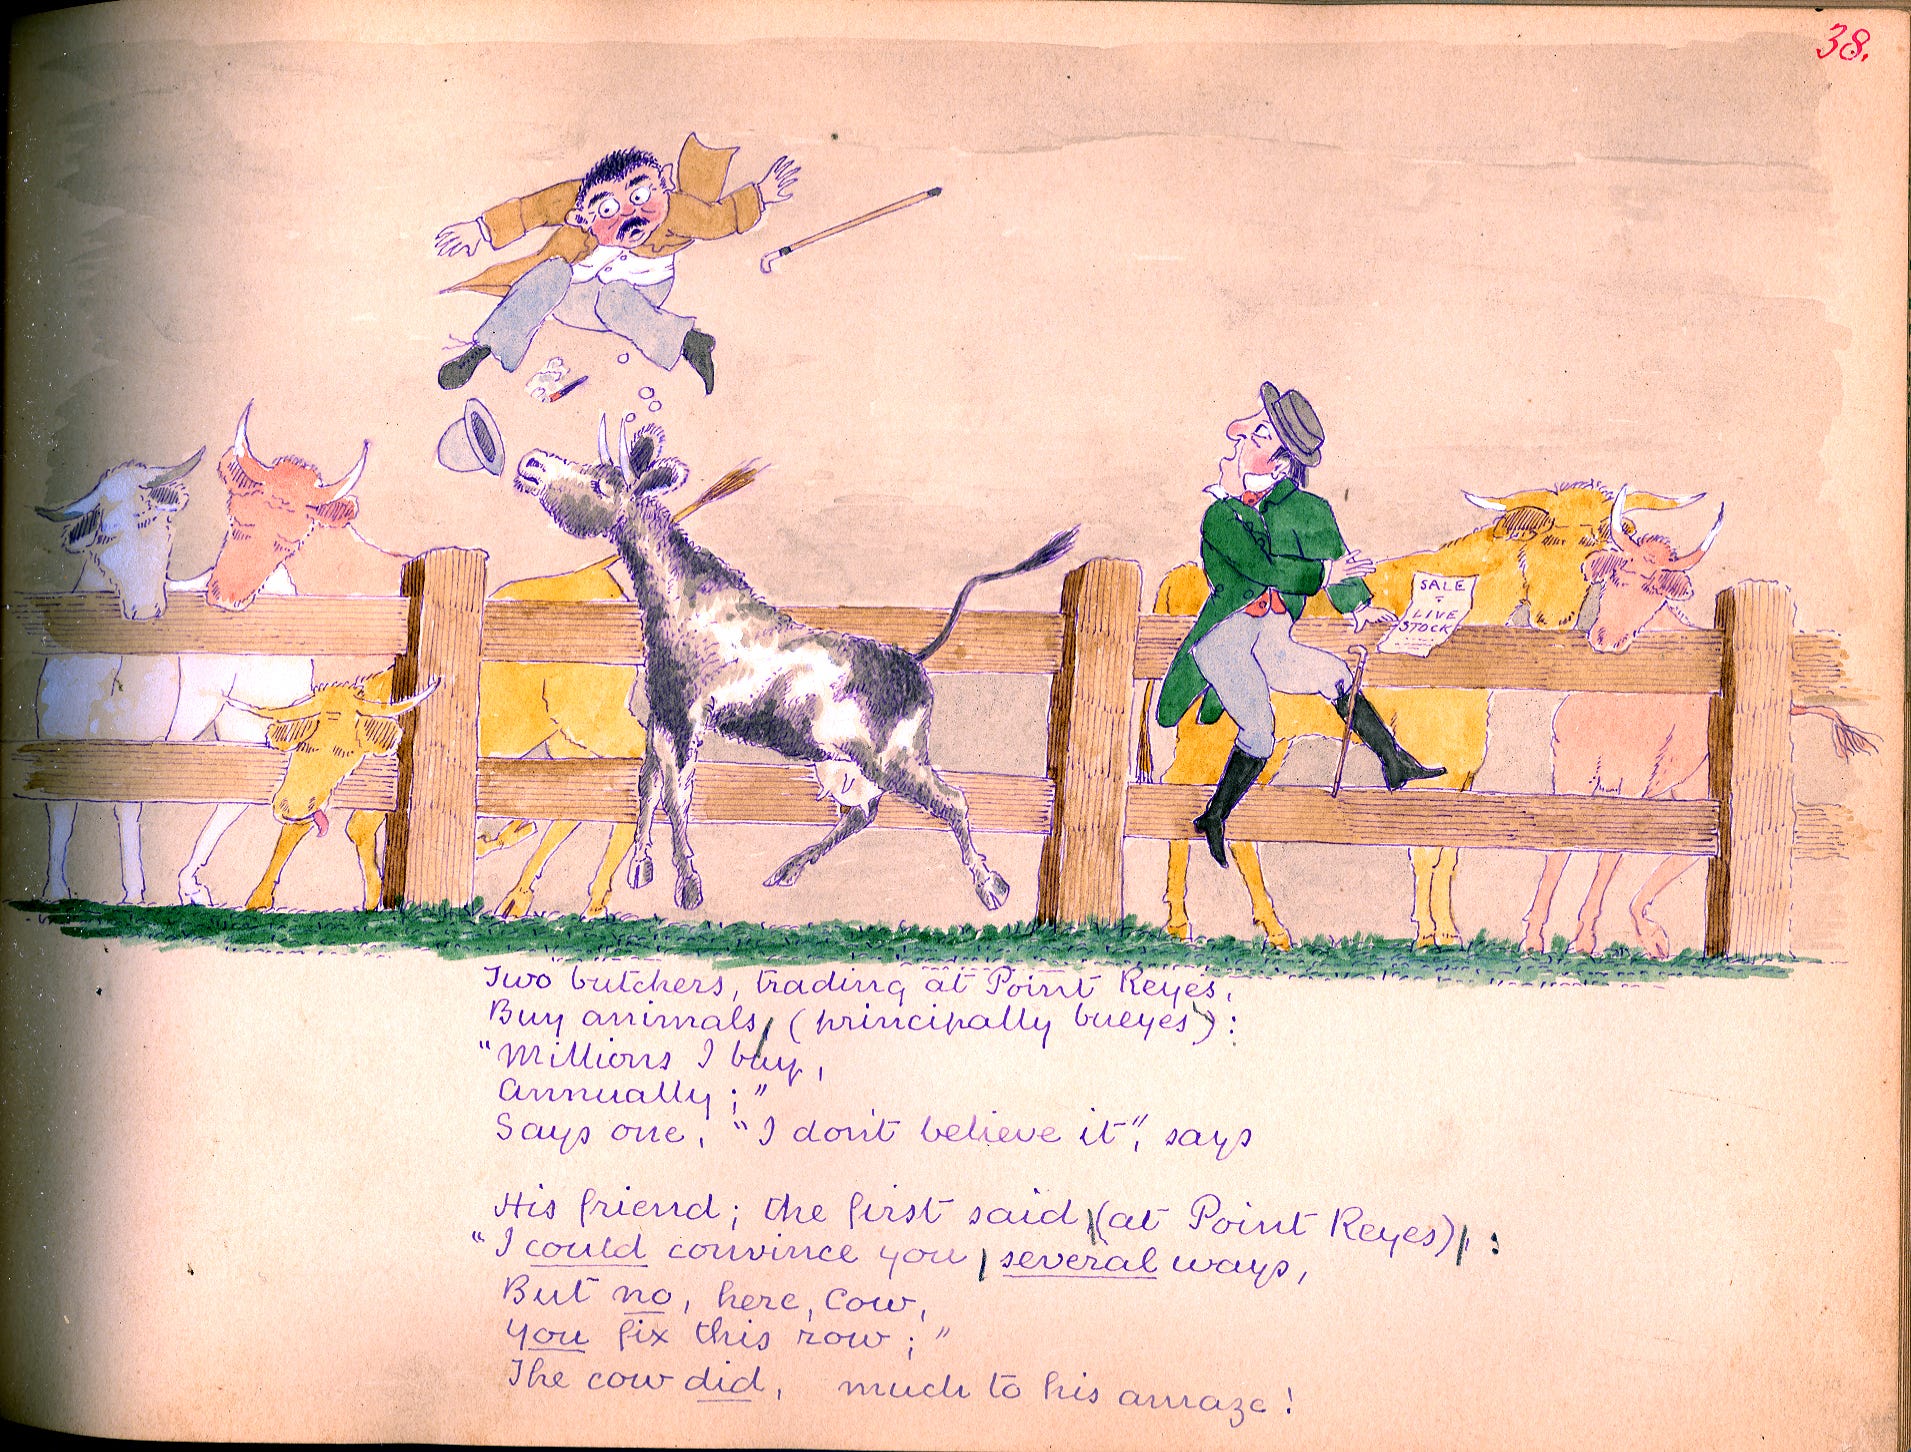 38.
SALE
LIVE
STOCK
Two butchers, trading at Point Reyes,
Buy animals, (principally bueyes):
"Millions I buy,
Annually;"
Says one, "I don't believe it", says
His friend; the first said, (at Point Reyes),:
"I could convince you, several ways,
But no, here, Cow,
You fix this row;"
The cow did, much to his amaze!